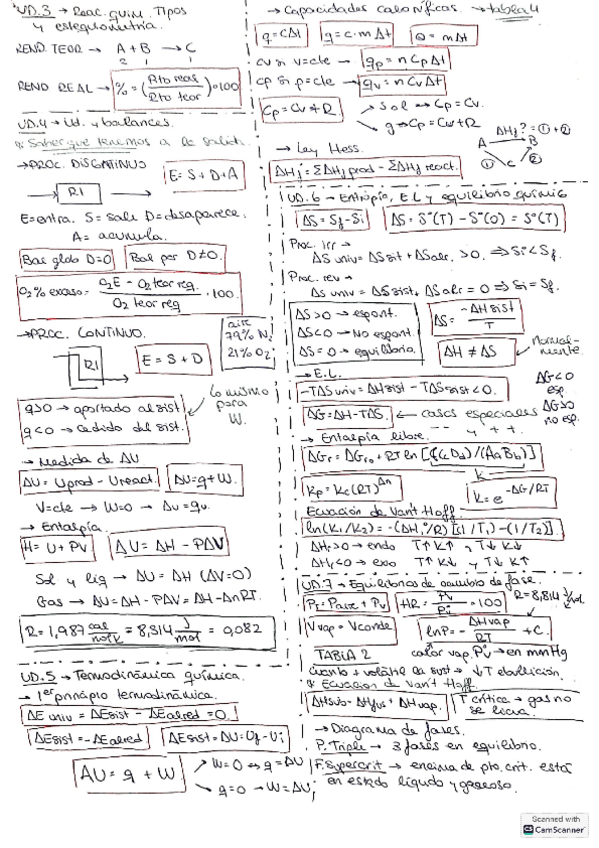 UD.3 → Reac. quim. Tipos
y estequiometría.
REND. TEOR → A + B → C
2 1 1
REND REAL → % = (Rto real / Rto teor) · 100
UD.4 → Ud. y balances.
Saber que tenemos a la salida.
→ PROC. DISCONTINUO
R1
E = S + D + A
E = entra. S = sale D = desaparece.
A = acumula.
Bal glob D=0 Bal per D≠0.
O2 % exceso = (O2 E - O2 teor req) / O2 teor req · 100.
→ PROC. CONTINUO.
R1
E = S + D
aire
79% N2
21% O2
q>0 → aportado al sist.
q<0 → cedido del sist.
Lo mismo
para
W.
→ Medida de ΔU
ΔU = Uprod - Ureact. ΔU = q + W.
V=cte → W=0 → Δu = qv.
→ Entalpía.
H = U + PV ΔU = ΔH - PΔV
Sol y liq → ΔU = ΔH (ΔV=0)
Gas → ΔU = ΔH - PΔV = ΔH - ΔnRT.
R = 1,987 cal/molK = 8,314 J/mol = 0,082
UD.5 → Termodinámica química.
→ 1er principio termodinámica.
ΔE univ = ΔEsist - ΔEalred = 0.
ΔEsist = -ΔEalred ΔEsist = ΔU = Uf - Ui
ΔU = q + W
W=0 ↔ q = ΔU
q=0 → W = ΔU
→ Capacidades caloríficas. → tabla 4
q = CΔt q = c·mΔt Q = mΔt
cv si v=cte → qp = nCpΔt
cp si p=cte → qv = nCvΔt
Cp = Cv + R
Sol → Cp = Cv.
g → Cp = Cv + R
→ Ley Hess.
ΔHj? = ① + ②
A B
① C ②
ΔHj° = ΣΔHj prod - ΣΔHj react.
UD.6 → Entropía, E.L y equilibrio químico
ΔS = Sf - Si ΔS = S°(T) - S°(0) = S°(T)
Proc. irr →
ΔS univ = ΔS sit + ΔS alr. > 0. ⇒ Si < Sf.
Proc. rev →
ΔS univ = ΔS sist + ΔS alr = 0 ⇒ Si = Sf.
ΔS>0 → espont.
ΔS<0 → No espont.
ΔS=0 → equilibrio.
ΔS = -ΔH sist / T
ΔH ≠ ΔS
normal-
mente.
→ E.L.
-TΔS univ = ΔH sist - TΔS sist < 0.
ΔG<0
esp.
ΔG>0
no esp.
ΔG = ΔH - TΔS. ← casos especiales
- - y + +.
→ Entalpia libre.
ΔGr = ΔGr0 + RT ln [(CcDd)/(AaBb)]
K
Kp = Kc(RT)^Δn K = e^-ΔG/RT
Ecuación de Vant Hoff
ln(K1/K2) = -(ΔH°/R)[(1/T1) - (1/T2)].
ΔHr>0 → endo T↑K↑ y T↓K↓
ΔHr<0 → exo T↑K↓ y T↓K↑
UD.7 → Equilibrios de cambio de fase.
PT = Paire + Pv HR = Pv/Pi · 100 R = 8,314 J/mol
Vvap = Vconde lnP = -ΔHvap/RT + C.
TABLA 2 calor vap. Pv → en mmHg
Cuanto + volátil la sust → ↓T ebullición.
Ecuacion de Vant Hoff
ΔHsub = ΔHfus + ΔHvap. T crítica → gas no
se licua.
→ Diagrama de fases.
P. Triple → 3 fases en equilibrio.
F. Supercrit → encima de pto. crit. estás
en estado líquido y gaseoso.
Scanned with
CS CamScanner